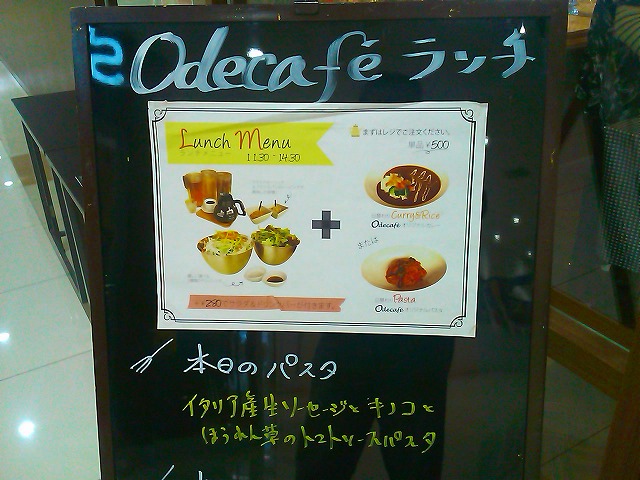 Odecafé ランチ
Lunch Menu
ランチメニュー
11:30 - 14:30
まずはレジでご注文ください。
単品 ¥500
Curry&Rice
Odecafé
または
Pasta
Odecafé
本日のパスタ
イタリア産生ソーセージとキノコと
ほうれん草のトマトソースパスタ